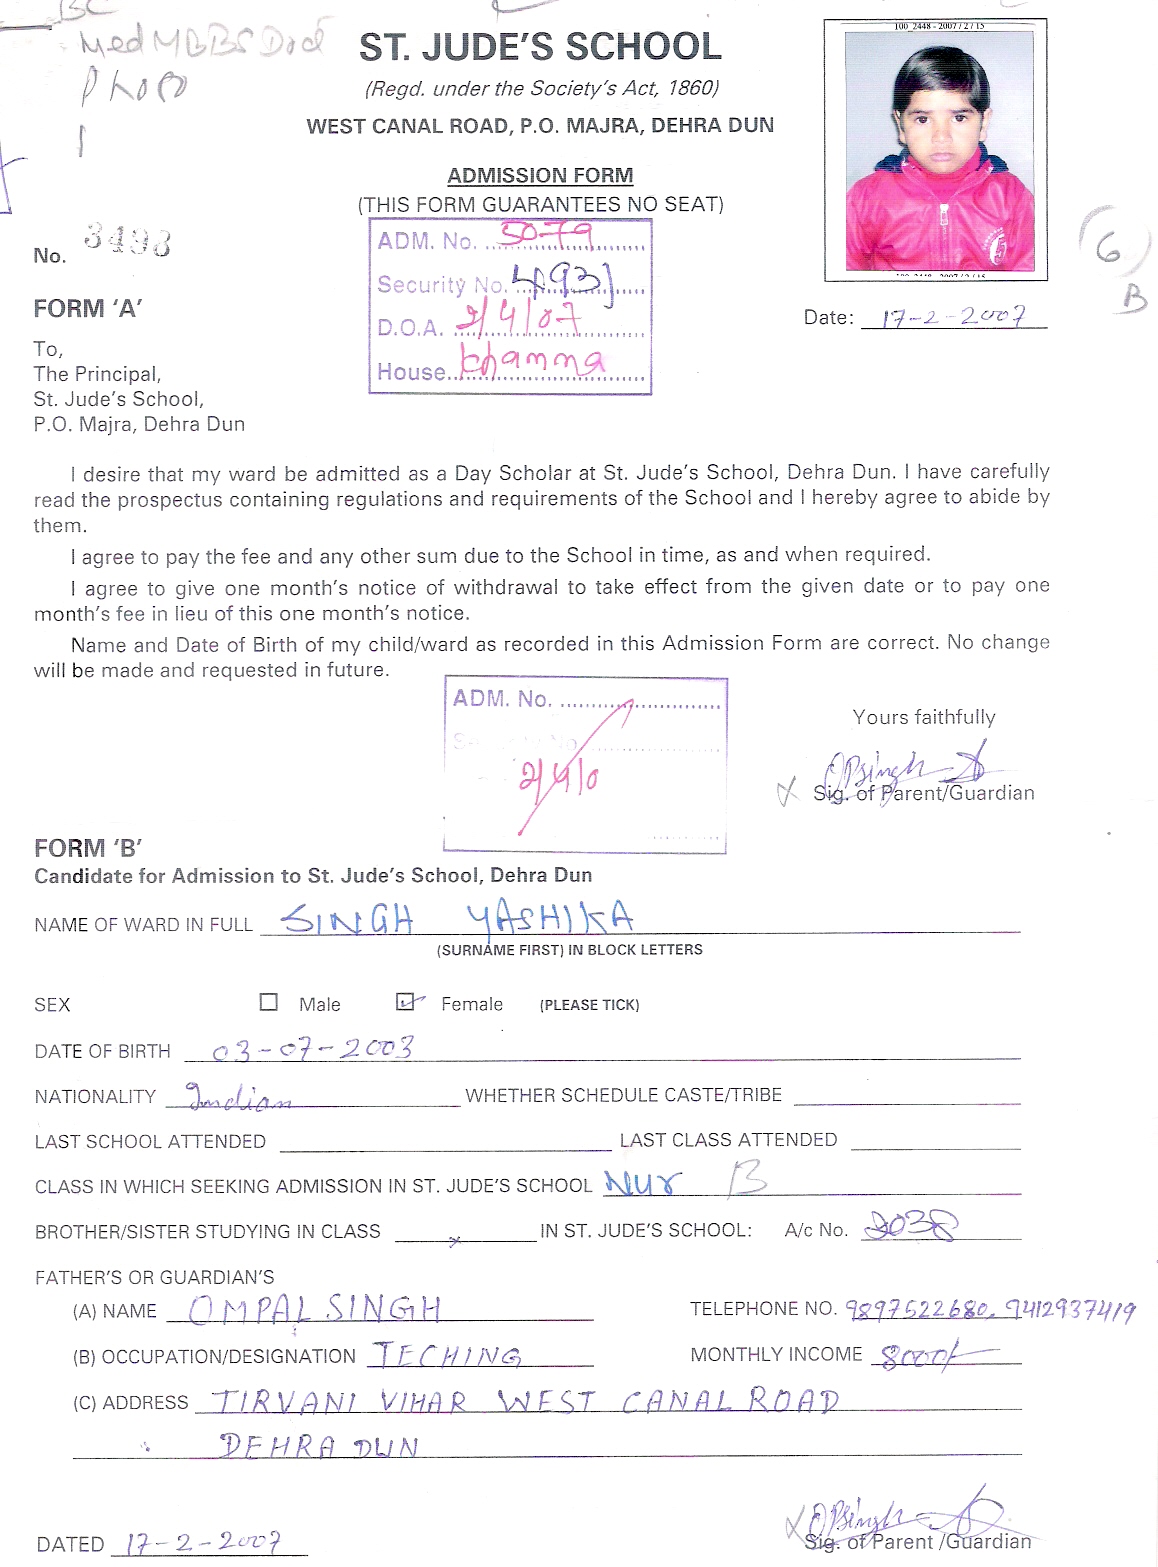 BC
Med MBBS Dod
Photo
ST. JUDE'S SCHOOL
(Regd. under the Society's Act, 1860)
WEST CANAL ROAD, P.O. MAJRA, DEHRA DUN
100_2448 - 2007 / 2 / 15
ADMISSION FORM
(THIS FORM GUARANTEES NO SEAT)
No. 3493
ADM. No. 5079
Security No. 4931
D.O.A. 2/4/07
House Khanna
6
B
FORM 'A'
Date: 17-2-2007
To,
The Principal,
St. Jude's School,
P.O. Majra, Dehra Dun
I desire that my ward be admitted as a Day Scholar at St. Jude's School, Dehra Dun. I have carefully
read the prospectus containing regulations and requirements of the School and I hereby agree to abide by
them.
I agree to pay the fee and any other sum due to the School in time, as and when required.
I agree to give one month's notice of withdrawal to take effect from the given date or to pay one
month's fee in lieu of this one month's notice.
Name and Date of Birth of my child/ward as recorded in this Admission Form are correct. No change
will be made and requested in future.
ADM. No.
Security No.
2/4/0
Yours faithfully
OPsingh
Sig. of Parent/Guardian
FORM 'B'
Candidate for Admission to St. Jude's School, Dehra Dun
NAME OF WARD IN FULL SINGH YASHIKA
(SURNAME FIRST) IN BLOCK LETTERS
SEX Male Female (PLEASE TICK)
DATE OF BIRTH 03-07-2003
NATIONALITY Indian WHETHER SCHEDULE CASTE/TRIBE
LAST SCHOOL ATTENDED LAST CLASS ATTENDED
CLASS IN WHICH SEEKING ADMISSION IN ST. JUDE'S SCHOOL Nur B
BROTHER/SISTER STUDYING IN CLASS x IN ST. JUDE'S SCHOOL: A/c No. 3038
FATHER'S OR GUARDIAN'S
(A) NAME OMPAL SINGH TELEPHONE NO. 9897522680, 9412937419
(B) OCCUPATION/DESIGNATION TECHING MONTHLY INCOME 8000/-
(C) ADDRESS TIRVANI VIHAR WEST CANAL ROAD
DEHRA DUN
OPSingh
DATED 17-2-2007 Sig. of Parent /Guardian